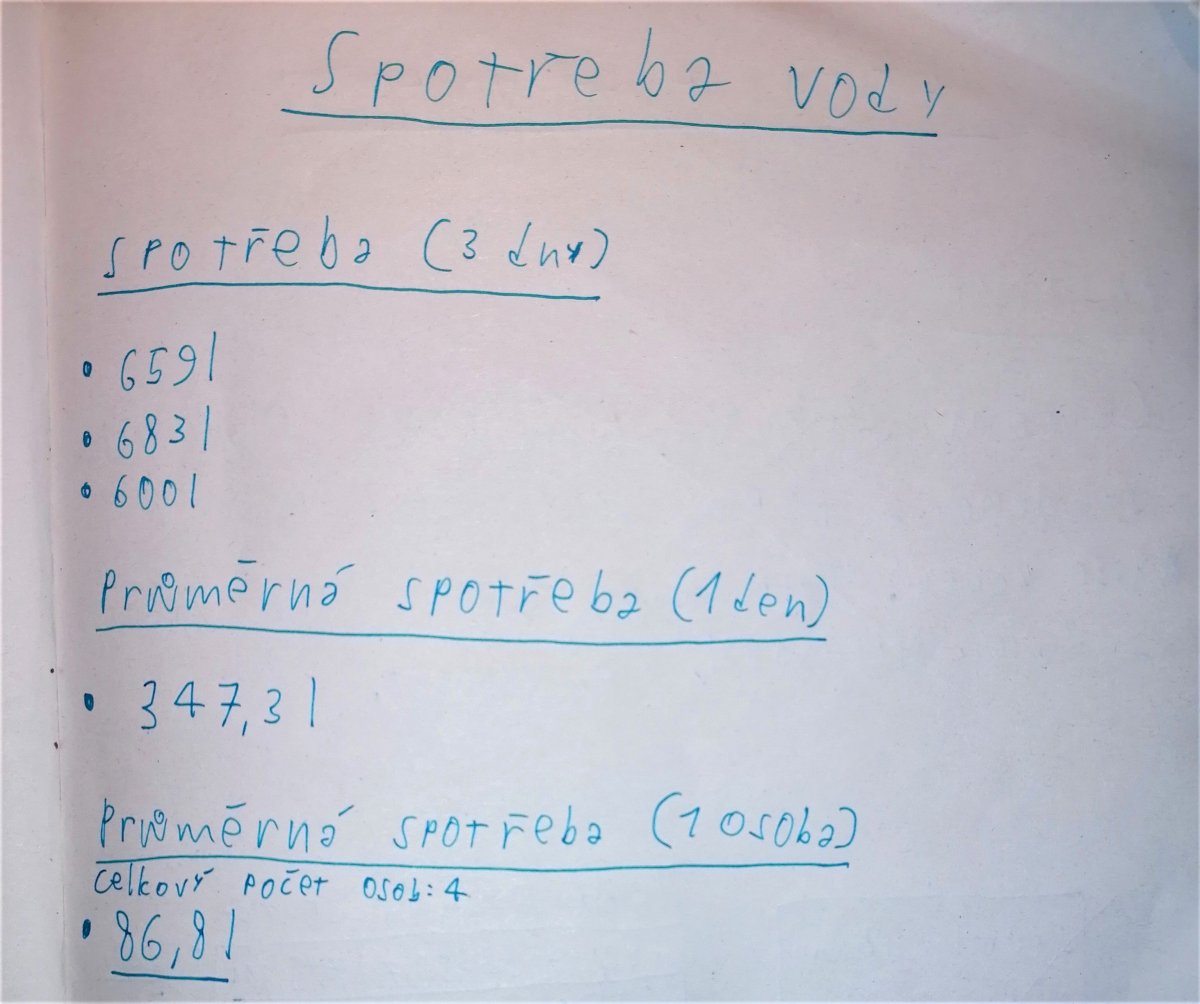 Spotřeba vody
Spotřeba (3 dny)
• 659 l
• 683 l
• 600 l
Průměrná spotřeba (1 den)
• 347,3 l
Průměrná spotřeba (1 osoba)
Celkový počet osob: 4
• 86,8 l